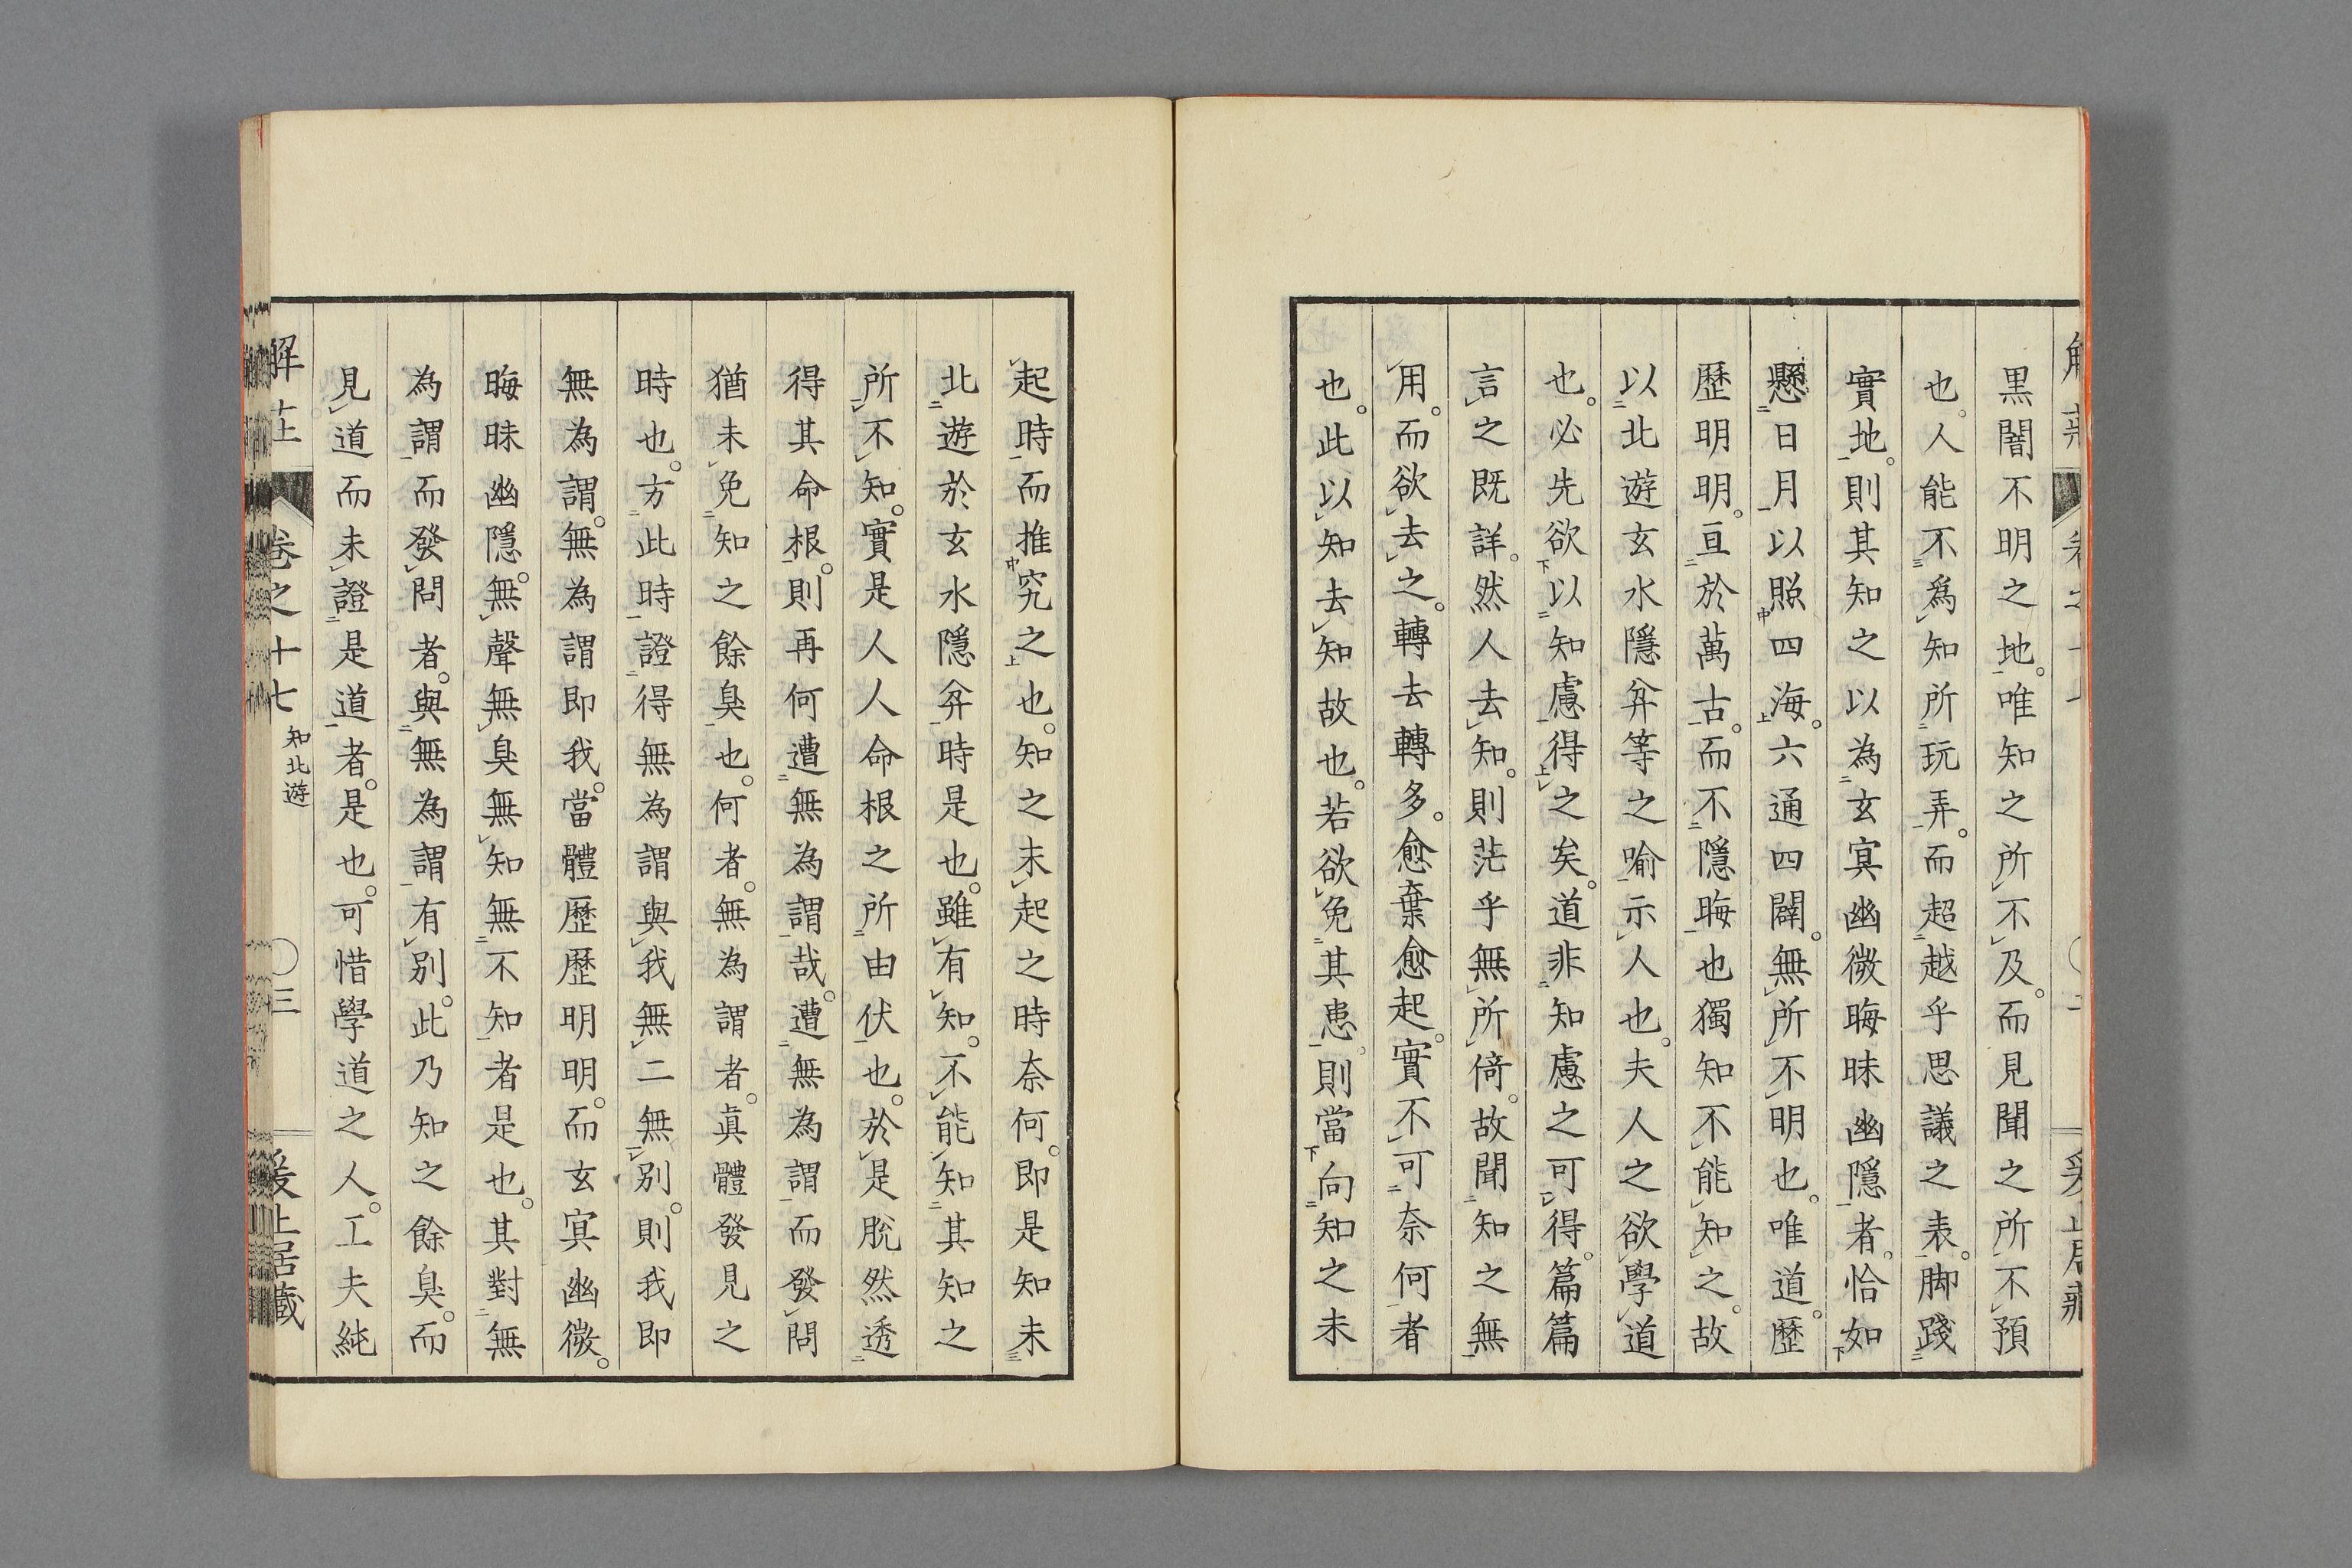 黒闇不明之地。唯知之所不及。而見聞之所不預
也。人能不爲知所玩弄。而超越乎思議之表。脚踐
實地。則其知之以為玄冥幽微晦昧幽隱者。恰如
懸日月以照四海。六通四闢。無所不明也。唯道。歷
歷明明。亘於萬古。而不隱晦也獨知不能知之。故
以北遊玄水隱弅等之喻示人也。夫人之欲學道
也。必先欲以知慮得之矣。道非知慮之可得。篇篇
言之既詳。然人去知。則茫乎無所倚。故聞知之無
用。而欲去之。轉去轉多。愈棄愈起。實不可奈何者
也。此以知去知故也。若欲免其患。則當向知之未
起時而推究之也。知之未起之時奈何。即是知未
北遊於玄水隱弅時是也。雖有知。不能知其知之
所不知。實是人人命根之所由伏也。於是脫然透
得其命根。則再何遭無為謂哉。遭無為謂而發問
猶未免知之餘臭也。何者。無為謂者。眞體發見之
時也。方此時證得無為謂與我無二無別。則我即
無為謂。無為謂即我。當體歷歷明明。而玄冥幽微。
晦昧幽隱。無聲無臭無知無不知者是也。其對無
為謂而發問者。與無為謂有別。此乃知之餘臭。而
見道而未證是道者。是也。可惜學道之人。工夫純
卷之十七
知北遊
三